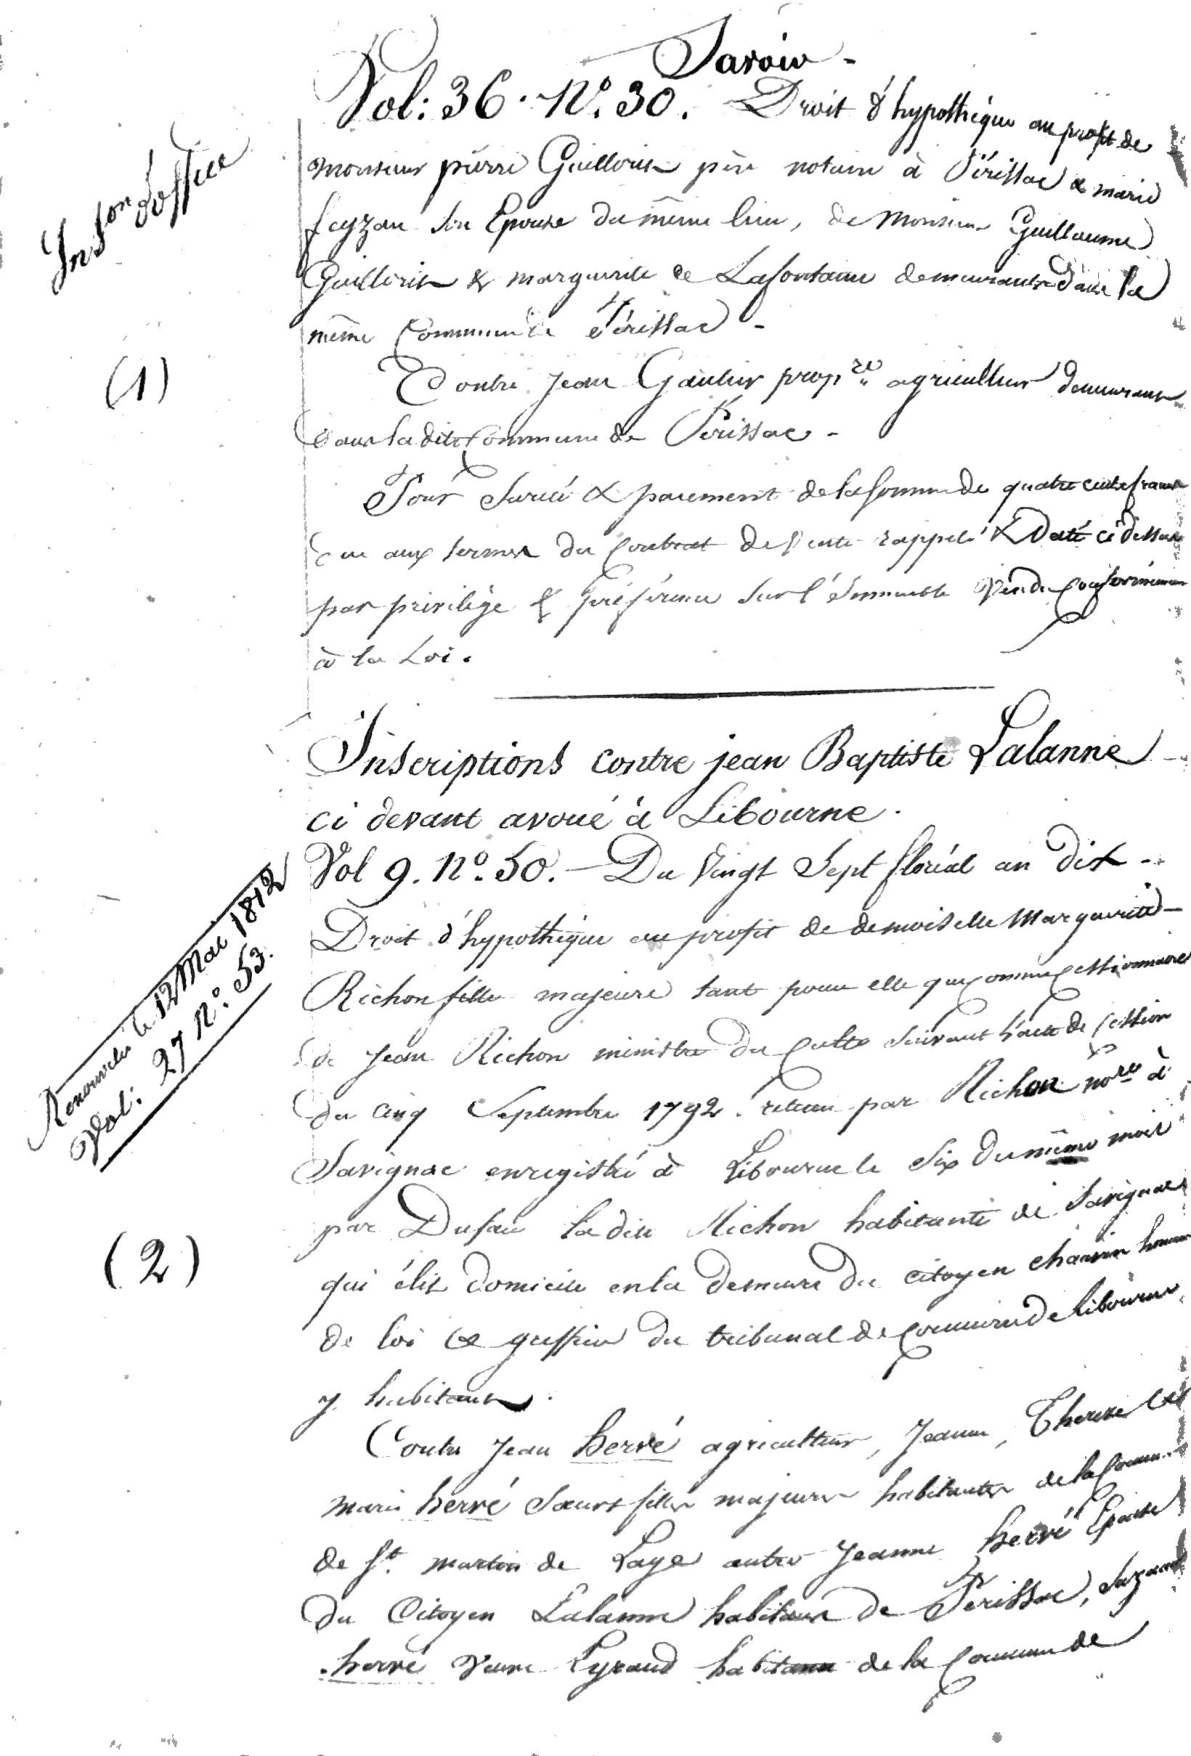 Savoir -
Vol: 36. N.º 30. Droit d'hypothéque au profit de
Monsieur pierre Guillorit père notaire à Périssac & marie
feyzau son Epouse du même lieu, de Monsieur Guillaume
Guillorit & marguerite de Lafontaine demeurants dans la
même Commune de Périssac -
Contre Jean Gautier prop.re agriculteur demeurant
dans la dite Commune de Périssac -
Pour sureté & paiement de la somme de quatre cents francs
due aux termes du Contrat de Vente rappelé & Daté ci dessus
par privilège & préférence sur l'immeuble Vendu Conformément
à la Loi.
Ins.on d'office
(1)
Inscriptions contre jean Baptiste Lalanne
ci devant avoué à Libourne.
Vol 9. N.º 50. - Du Vingt Sept floréal an dix -
Droit d'hypothéque au profit de demoiselle Marguerite
Richon fille majeure tant pour elle que comme Cessionnaire
de Jean Richon ministre du Culte suivant l'acte de Cession
du cinq Septembre 1792. retenu par Richon no.re à
Savignac enregistré à Libourne le Six du même mois
par Dufau la dite Richon habitante de Savignac
qui élit domicile en la demeure du citoyen homme
de loi & greffier du tribunal de Commerce de Libourne,
y habitant.
Renouvelée le 12 Mai 1812
Vol: 27 N.º 53.
(2)
Contre Jean hervé agriculteur, Jeanne, Therese &
marie hervé Sœurs filles majeures habitantes de la Comm.
de S.t martin de Laye autre Jeanne hervé Epouse
du Citoyen Lalanne habitant de Périssac,
hervé Veuve Eyraud habitante de la Commune de